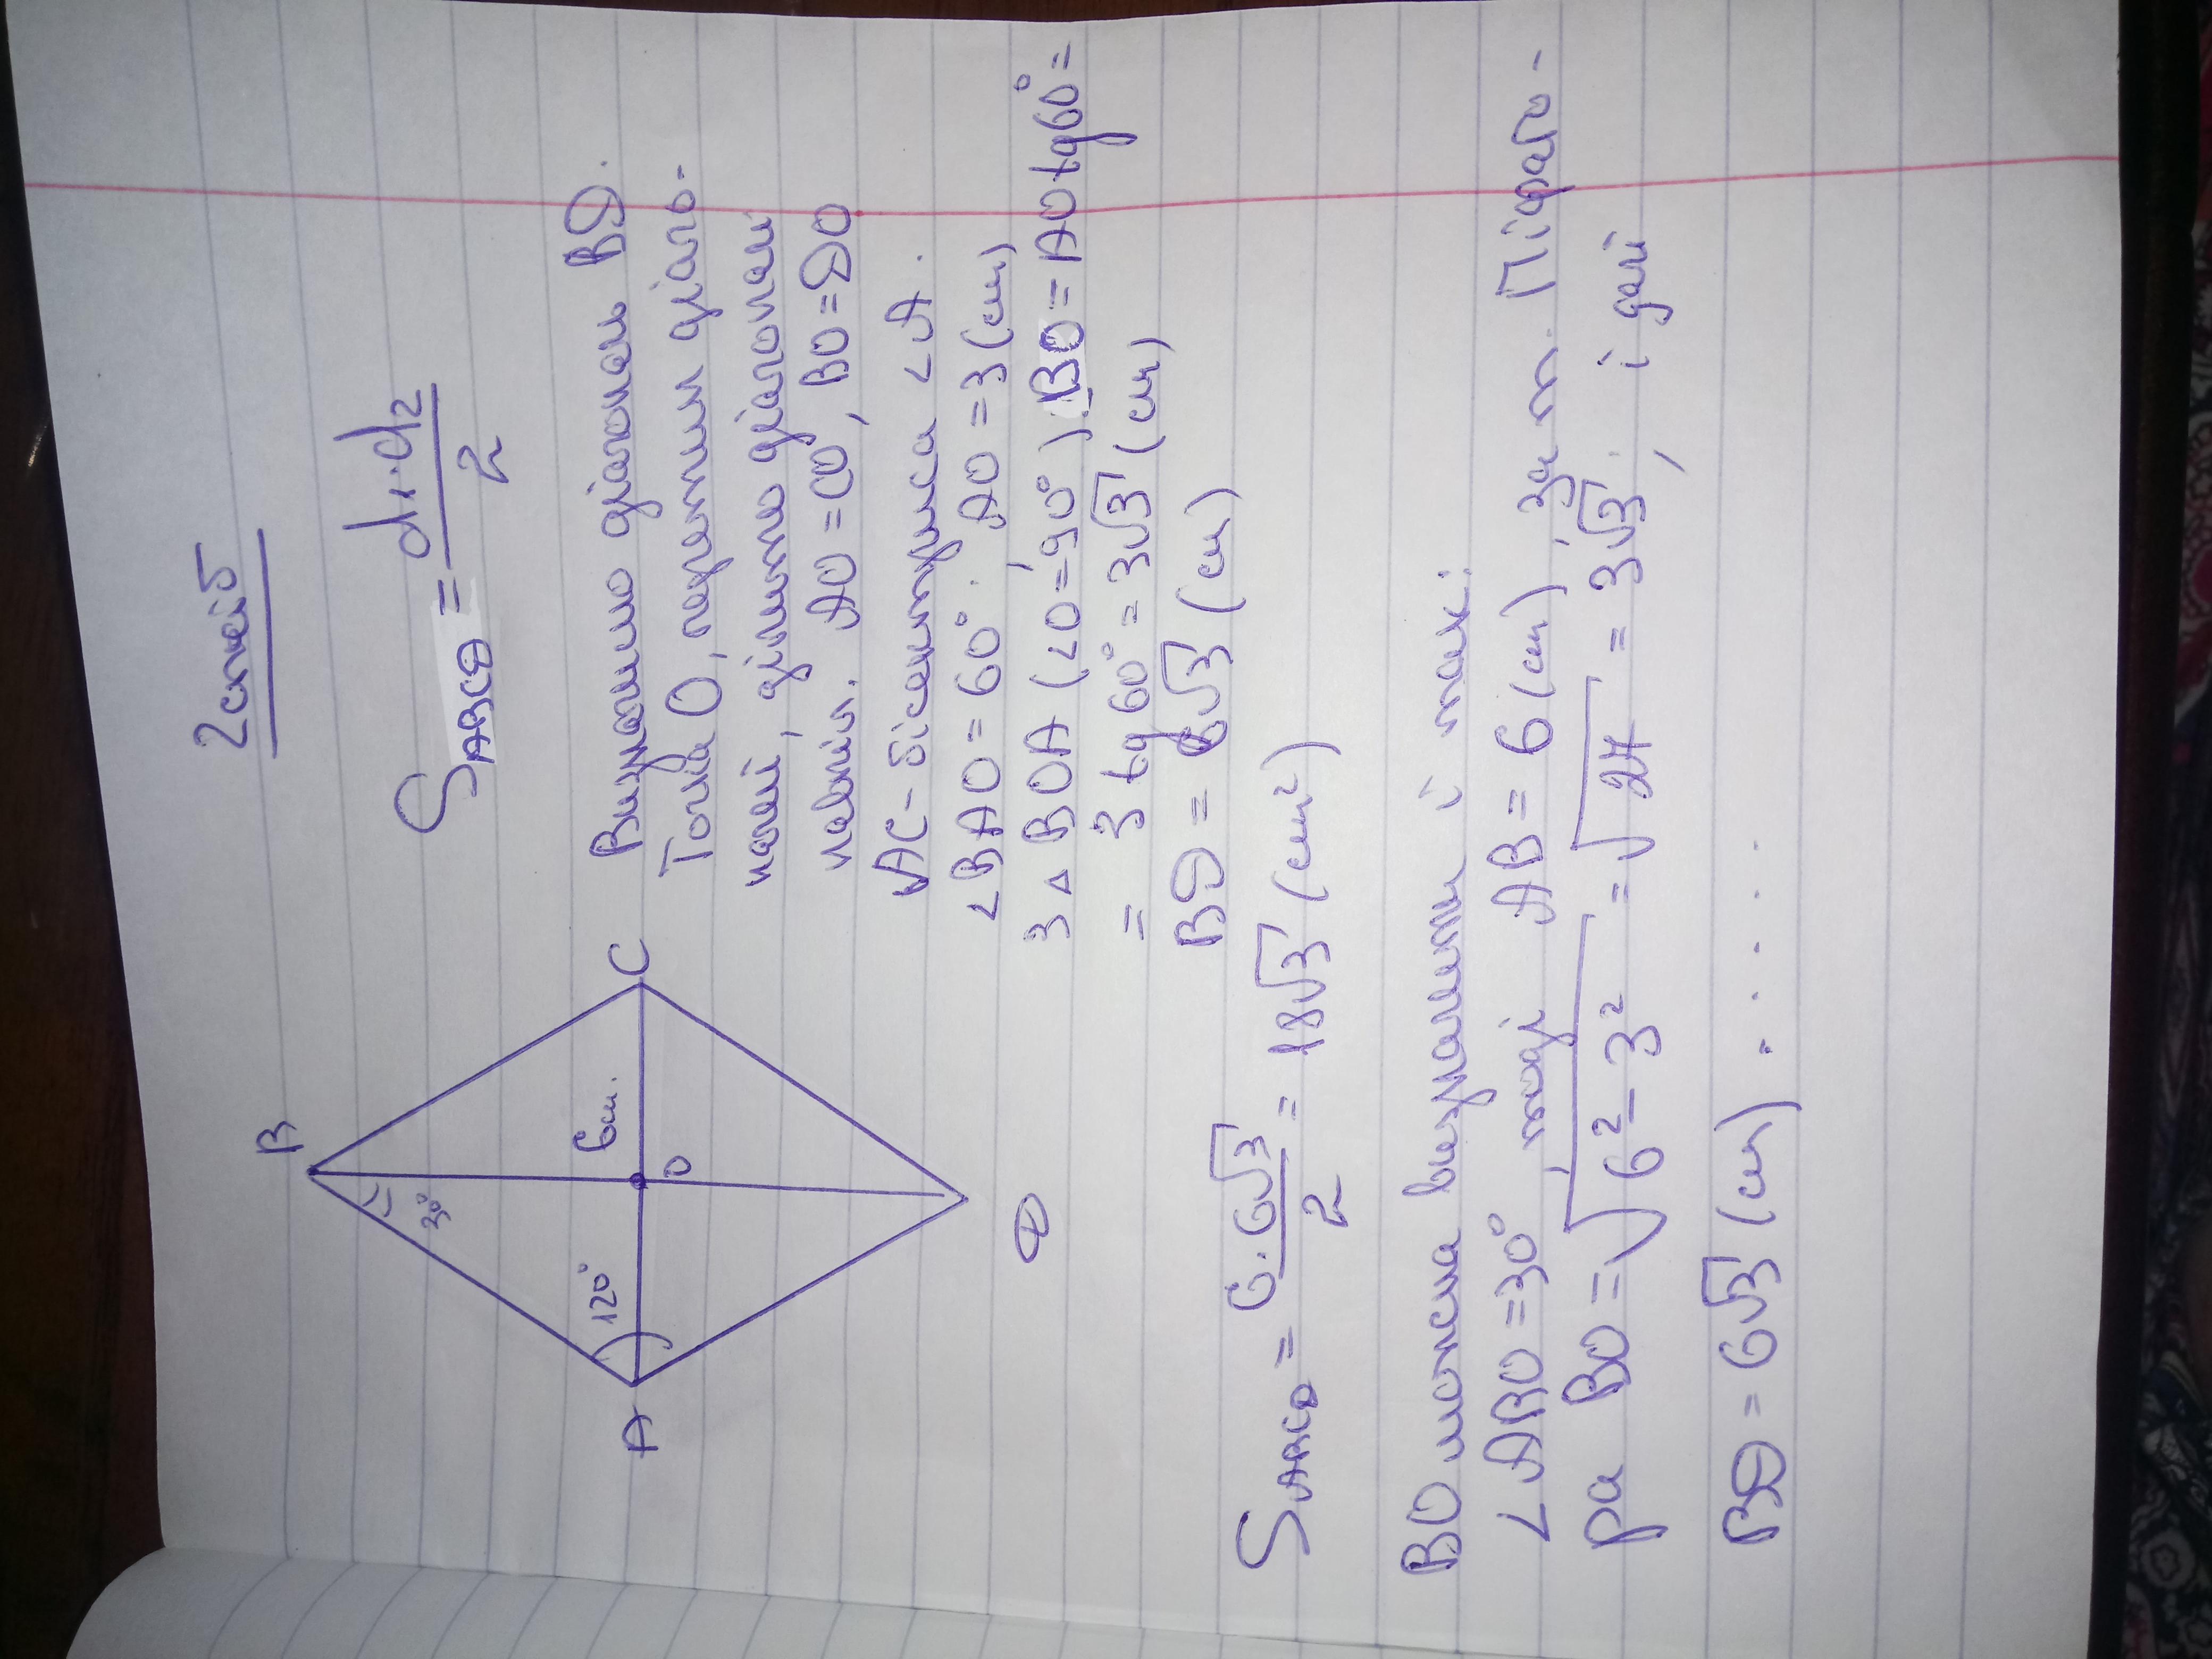 2 спосіб
S_ABCD = d₁·d₂ / 2
B
30°
120°
6 см.
A
O
C
D
Визначимо діагональ BD.
Точка O, перетин діаго-
налі, ділить діагоналі
навпіл. AO = CO, BO = DO
AC - бісектриса ∠A.
∠BAO = 60°. AO = 3 (см)
З △ BOA (∠O = 90°). BO = AO tg60° =
= 3 tg 60° = 3√3 (см)
BD = 6√3 (см)
S_ABCD = 6·6√3 / 2 = 18√3 (см²)
BO можна визначити і так:
∠ABO = 30°, тоді AB = 6 (см), за т. Піфаго-
ра BO = √6² - 3² = √27 = 3√3, і далі
BD = 6√3 (см) . . . . .